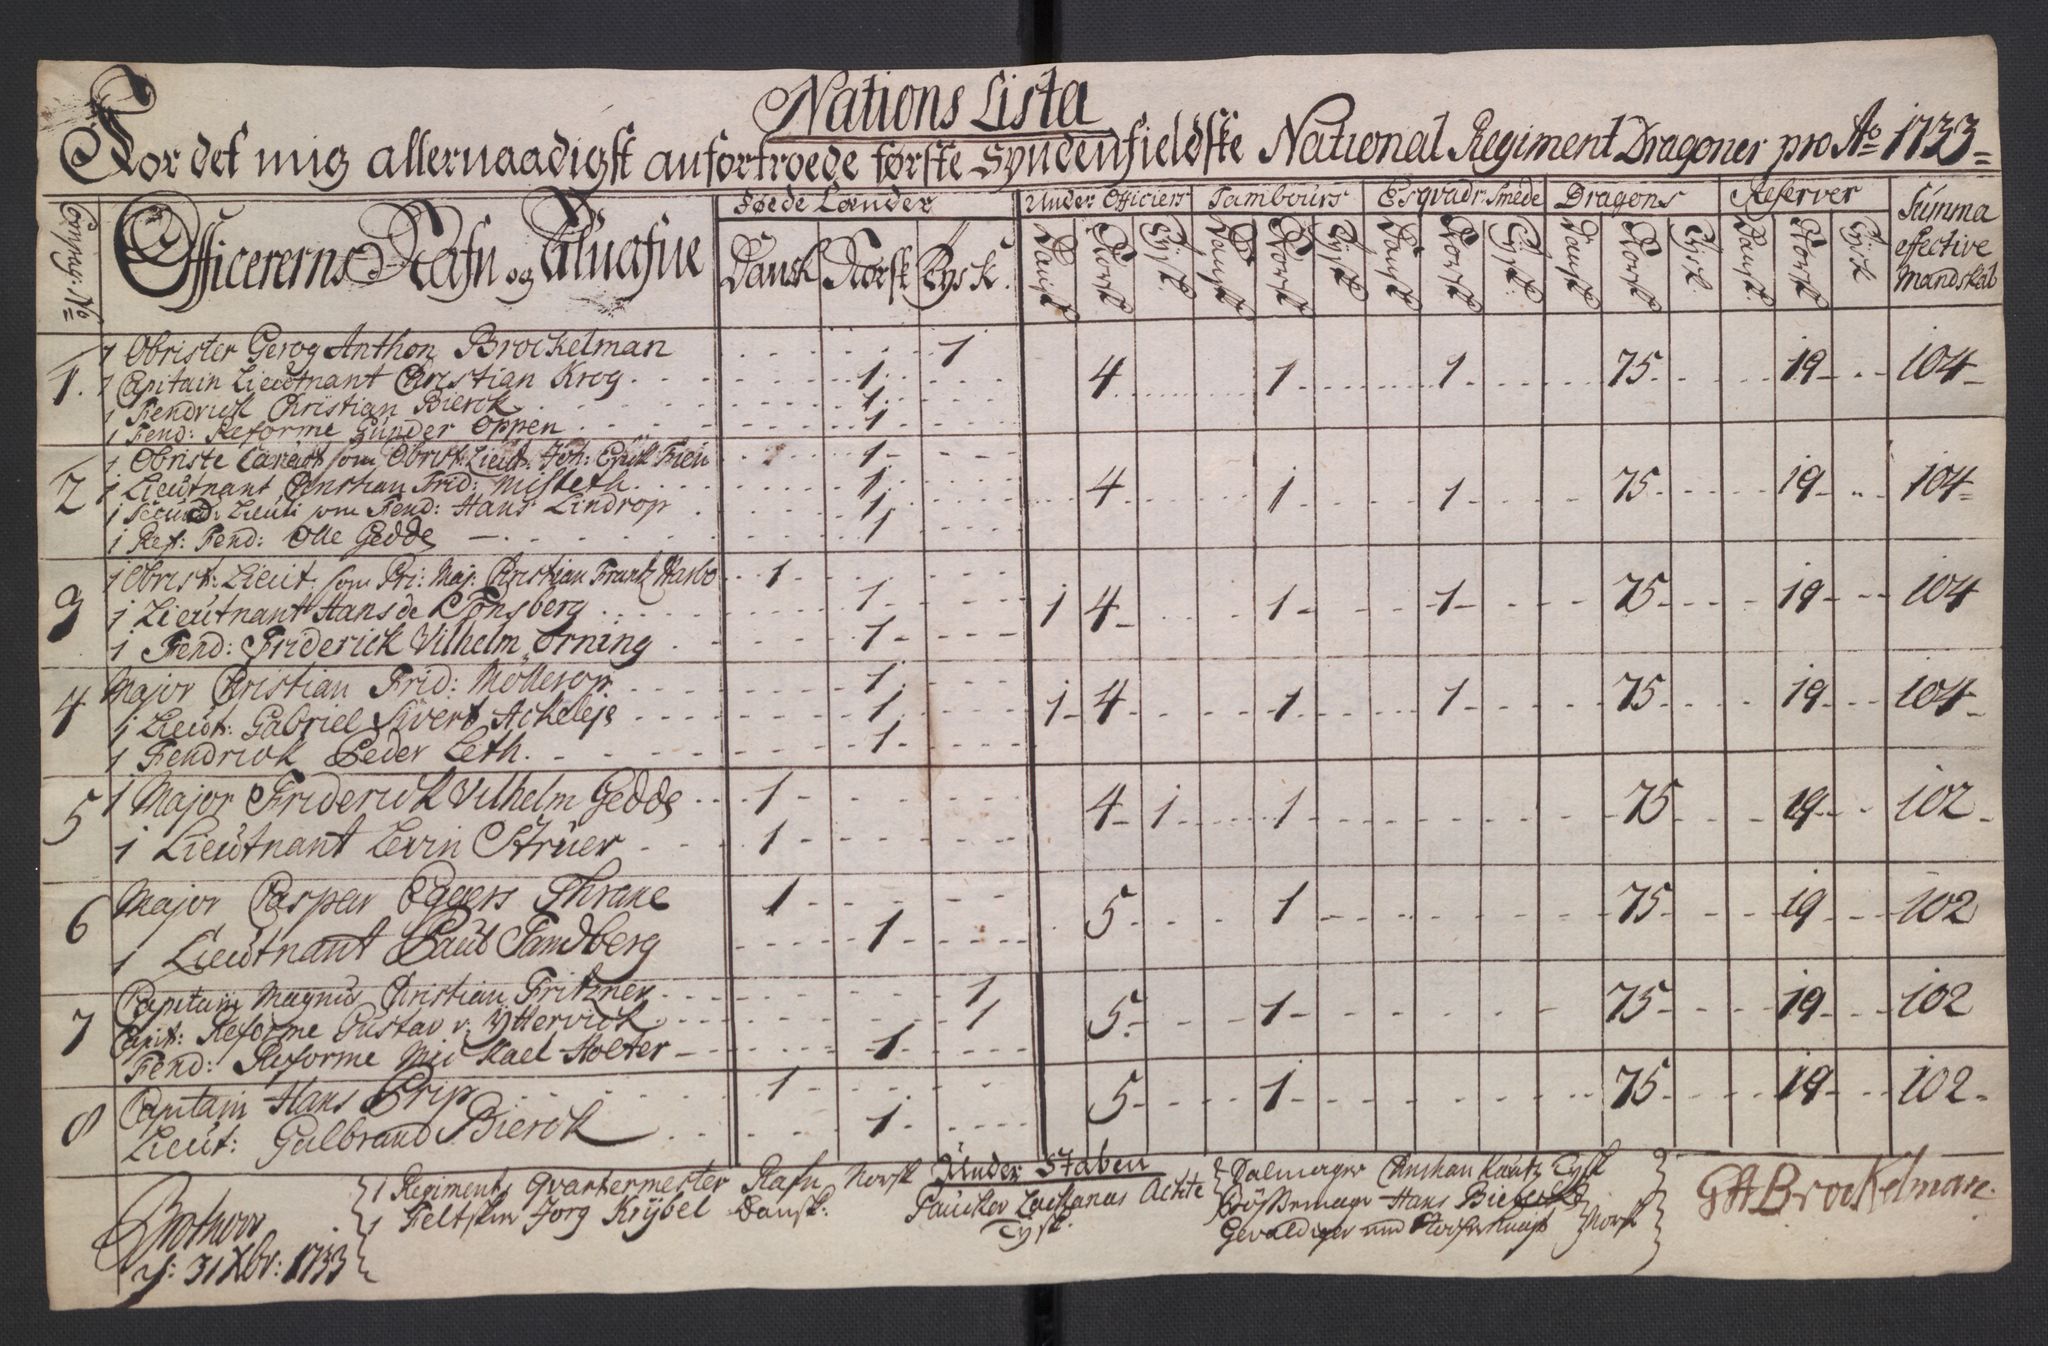 Nations Lista
For det mig allernaadigst anfortroede første Syndenfieldske National Regiment Dragoner pro Ao 1733
Compag: No Officerernes Nafn og Føede Lænder Under Officiers Tambours Esqvadr: Smede Dragons Reserver Summa effective Mandskab
Dansk Norsk Tysk Dansk Norsk Tysk Dansk Norsk Tysk Dansk Norsk Tysk Dansk Norsk Tysk Dansk Norsk Tysk
1. 1 Obrister Gerog Anthon Brockelman 1 4 1 1 75 19 104
1 Capitain Lieutnant Christian Krog 1
1 Fendrick Christian Bierck 1
1 Fend: Reforme Gunder Oppen 1
2 1 Obriste Caract som Obrist Lieut: Joh: 1 4 1 1 75 19 104
1 Lieutnant Christian Frid: 1
1 Secund: Lieut: som Fend: Hans Lindrop 1
1 Ref: Fend: Olle Gedde 1
3 1 Obrist: Lieut. som Pri: Maj: Christian Frantz Harbo 1 1 4 1 1 75 19 104
1 Lieutnant Hans de Tonsberg 1
1 Fend: Friderick Vilhelm Orning 1
4 Major Christian Frid: Mölleron 1 1 4 1 1 75 19 104
1 Lieut: Gabriel Sivert Acheleje 1
1 Fendrick Peder Leth 1
5 1 Major Friderick Vilhelm Gedde 1 4 1 1 75 19 102
1 Lieutnant Levin Struer 1
6 Major Caspar Eggers Thrane 1 5 1 75 19 102
1 Lieutnant Paul Sandberg 1
7 Capitain Magnus Christian Fritzner 1 5 1 75 19 102
Capit: Reforme Gustav v. Yttervick 1
Fend: Reforme Mickael Stolter 1
8 Capitain Hans Crip 1 5 1 75 19 102
Lieut: Gulbrand Bierck 1
Under Staben
1 Regiments Qvartermester Rafn Norsk
1 Feltskier Jorg Krybel Dansk
Paucker Zacharias Achte
Tysk
Sadelmager Christian Kautz Tysk
Bössemager Hans
Gevaldiger und Norsk
31 Xbr: 1733
GABrockelman